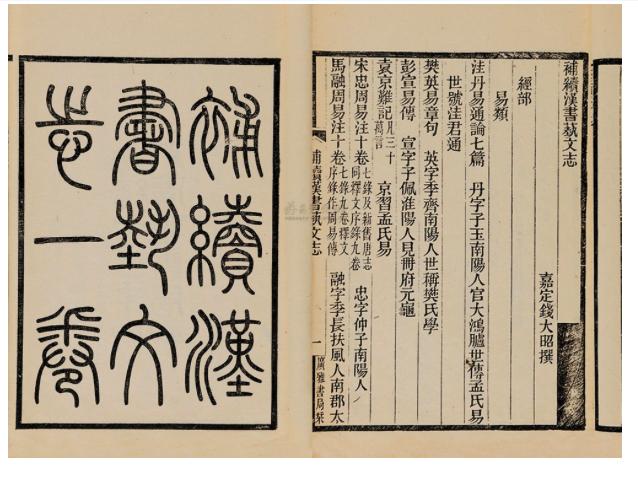 補續漢書蓺文志
嘉定錢大昭撰
經部
易類
洼丹易通論七篇 丹字子玉南陽人官大鴻臚世傳孟氏易
世號洼君通
樊英易章句 英字季齊南陽人世稱樊氏學
彭宣易傳 宣字子佩淮陽人見冊府元龜
袁京難記凡三十萬言 京習孟氏易
宋忠周易注十卷七錄及新舊唐志同釋文序錄九卷 忠字仲子南陽人
馬融周易注十卷七錄九卷釋文序錄作周易傳 融字季長扶風人南郡太
補續漢書蓺文志 一 廣雅書局栞
補續漢
書蓺文
志一卷